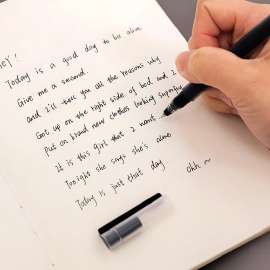 HEY!
Today is a good day to be alive
Give me a second.
and I'll tell you all the reasons why
Got up on the right side of bed and I
put on brand new clothes looking
It is this girl that I want
Tonight she says she's alone
Today is just that day ohh ~